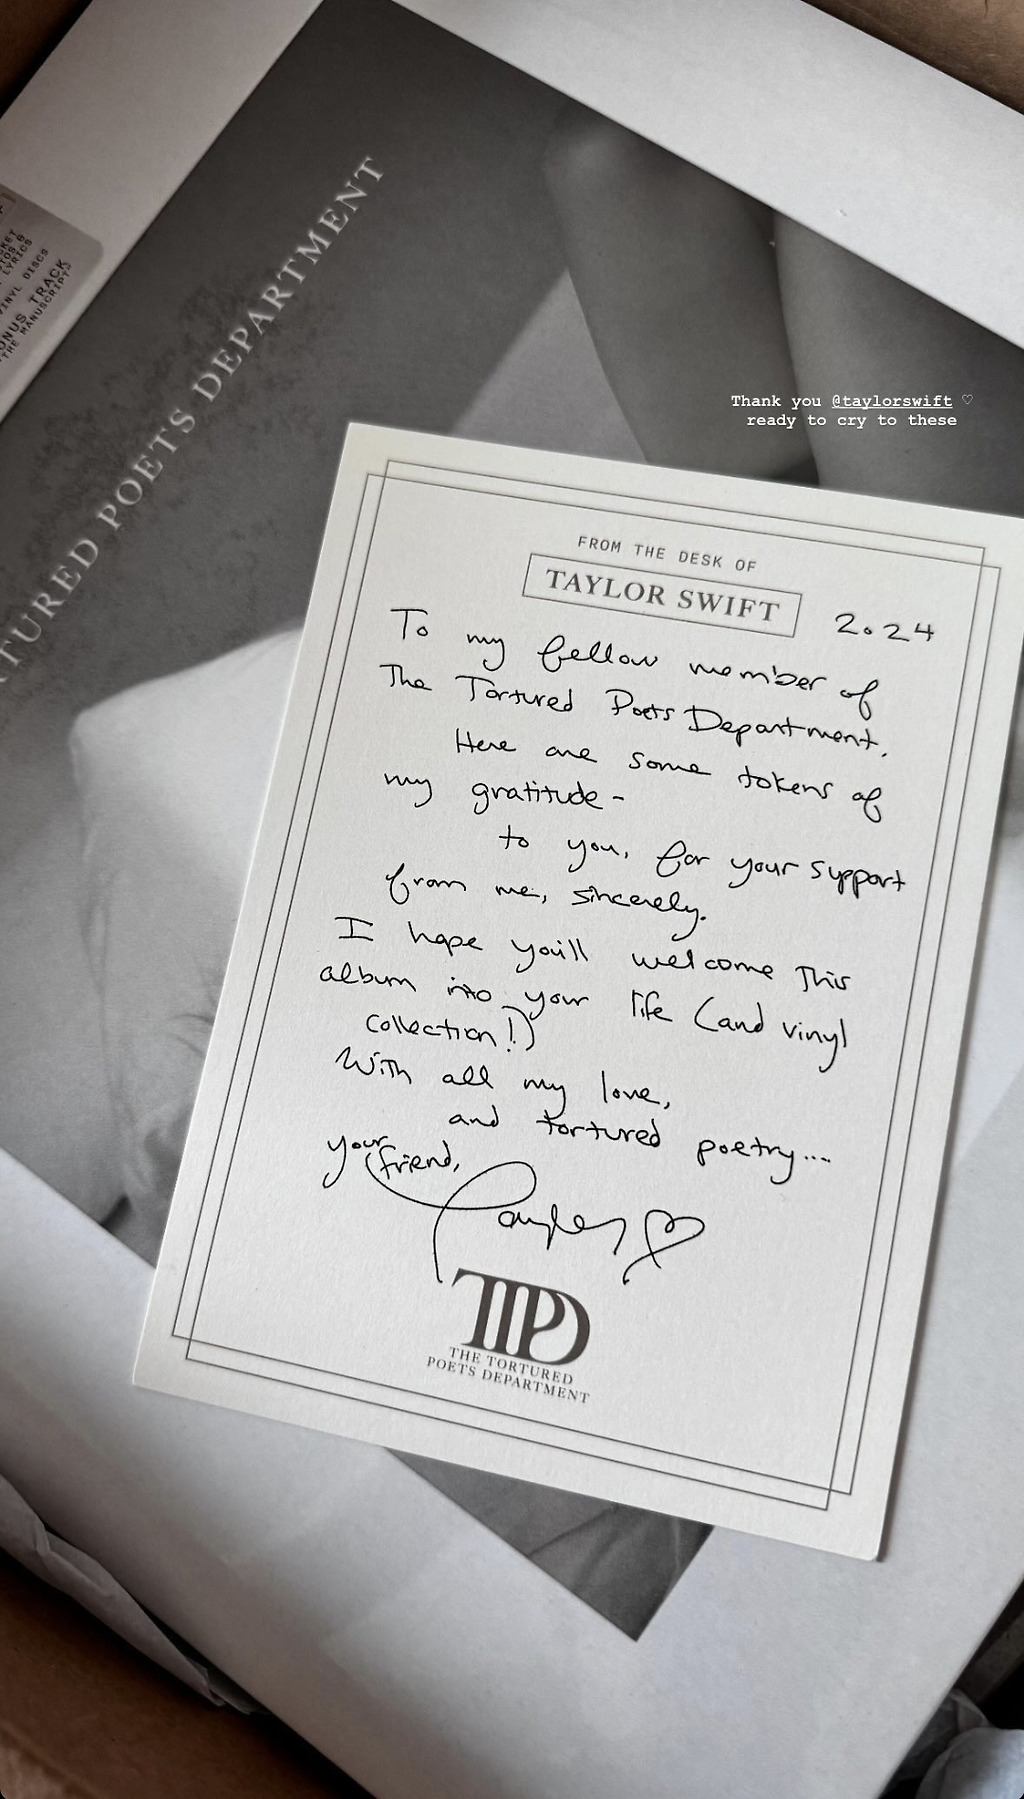 TURED POETS DEPARTMENT
LYRICS
VINYL DISCS
ONUS TRACK
"THE MANUSCRIPT"
Thank you @taylorswift ♡
ready to cry to these
FROM THE DESK OF
TAYLOR SWIFT
2024
To my fellow member of
The Tortured Poets Department.
Here are some tokens of
my gratitude -
to you, for your support
from me, sincerely.
I hope you'll welcome this
album into your life (and vinyl
collection!)
With all my love,
and tortured poetry...
your friend,
Taylor ♡
TTPD
THE TORTURED
POETS DEPARTMENT